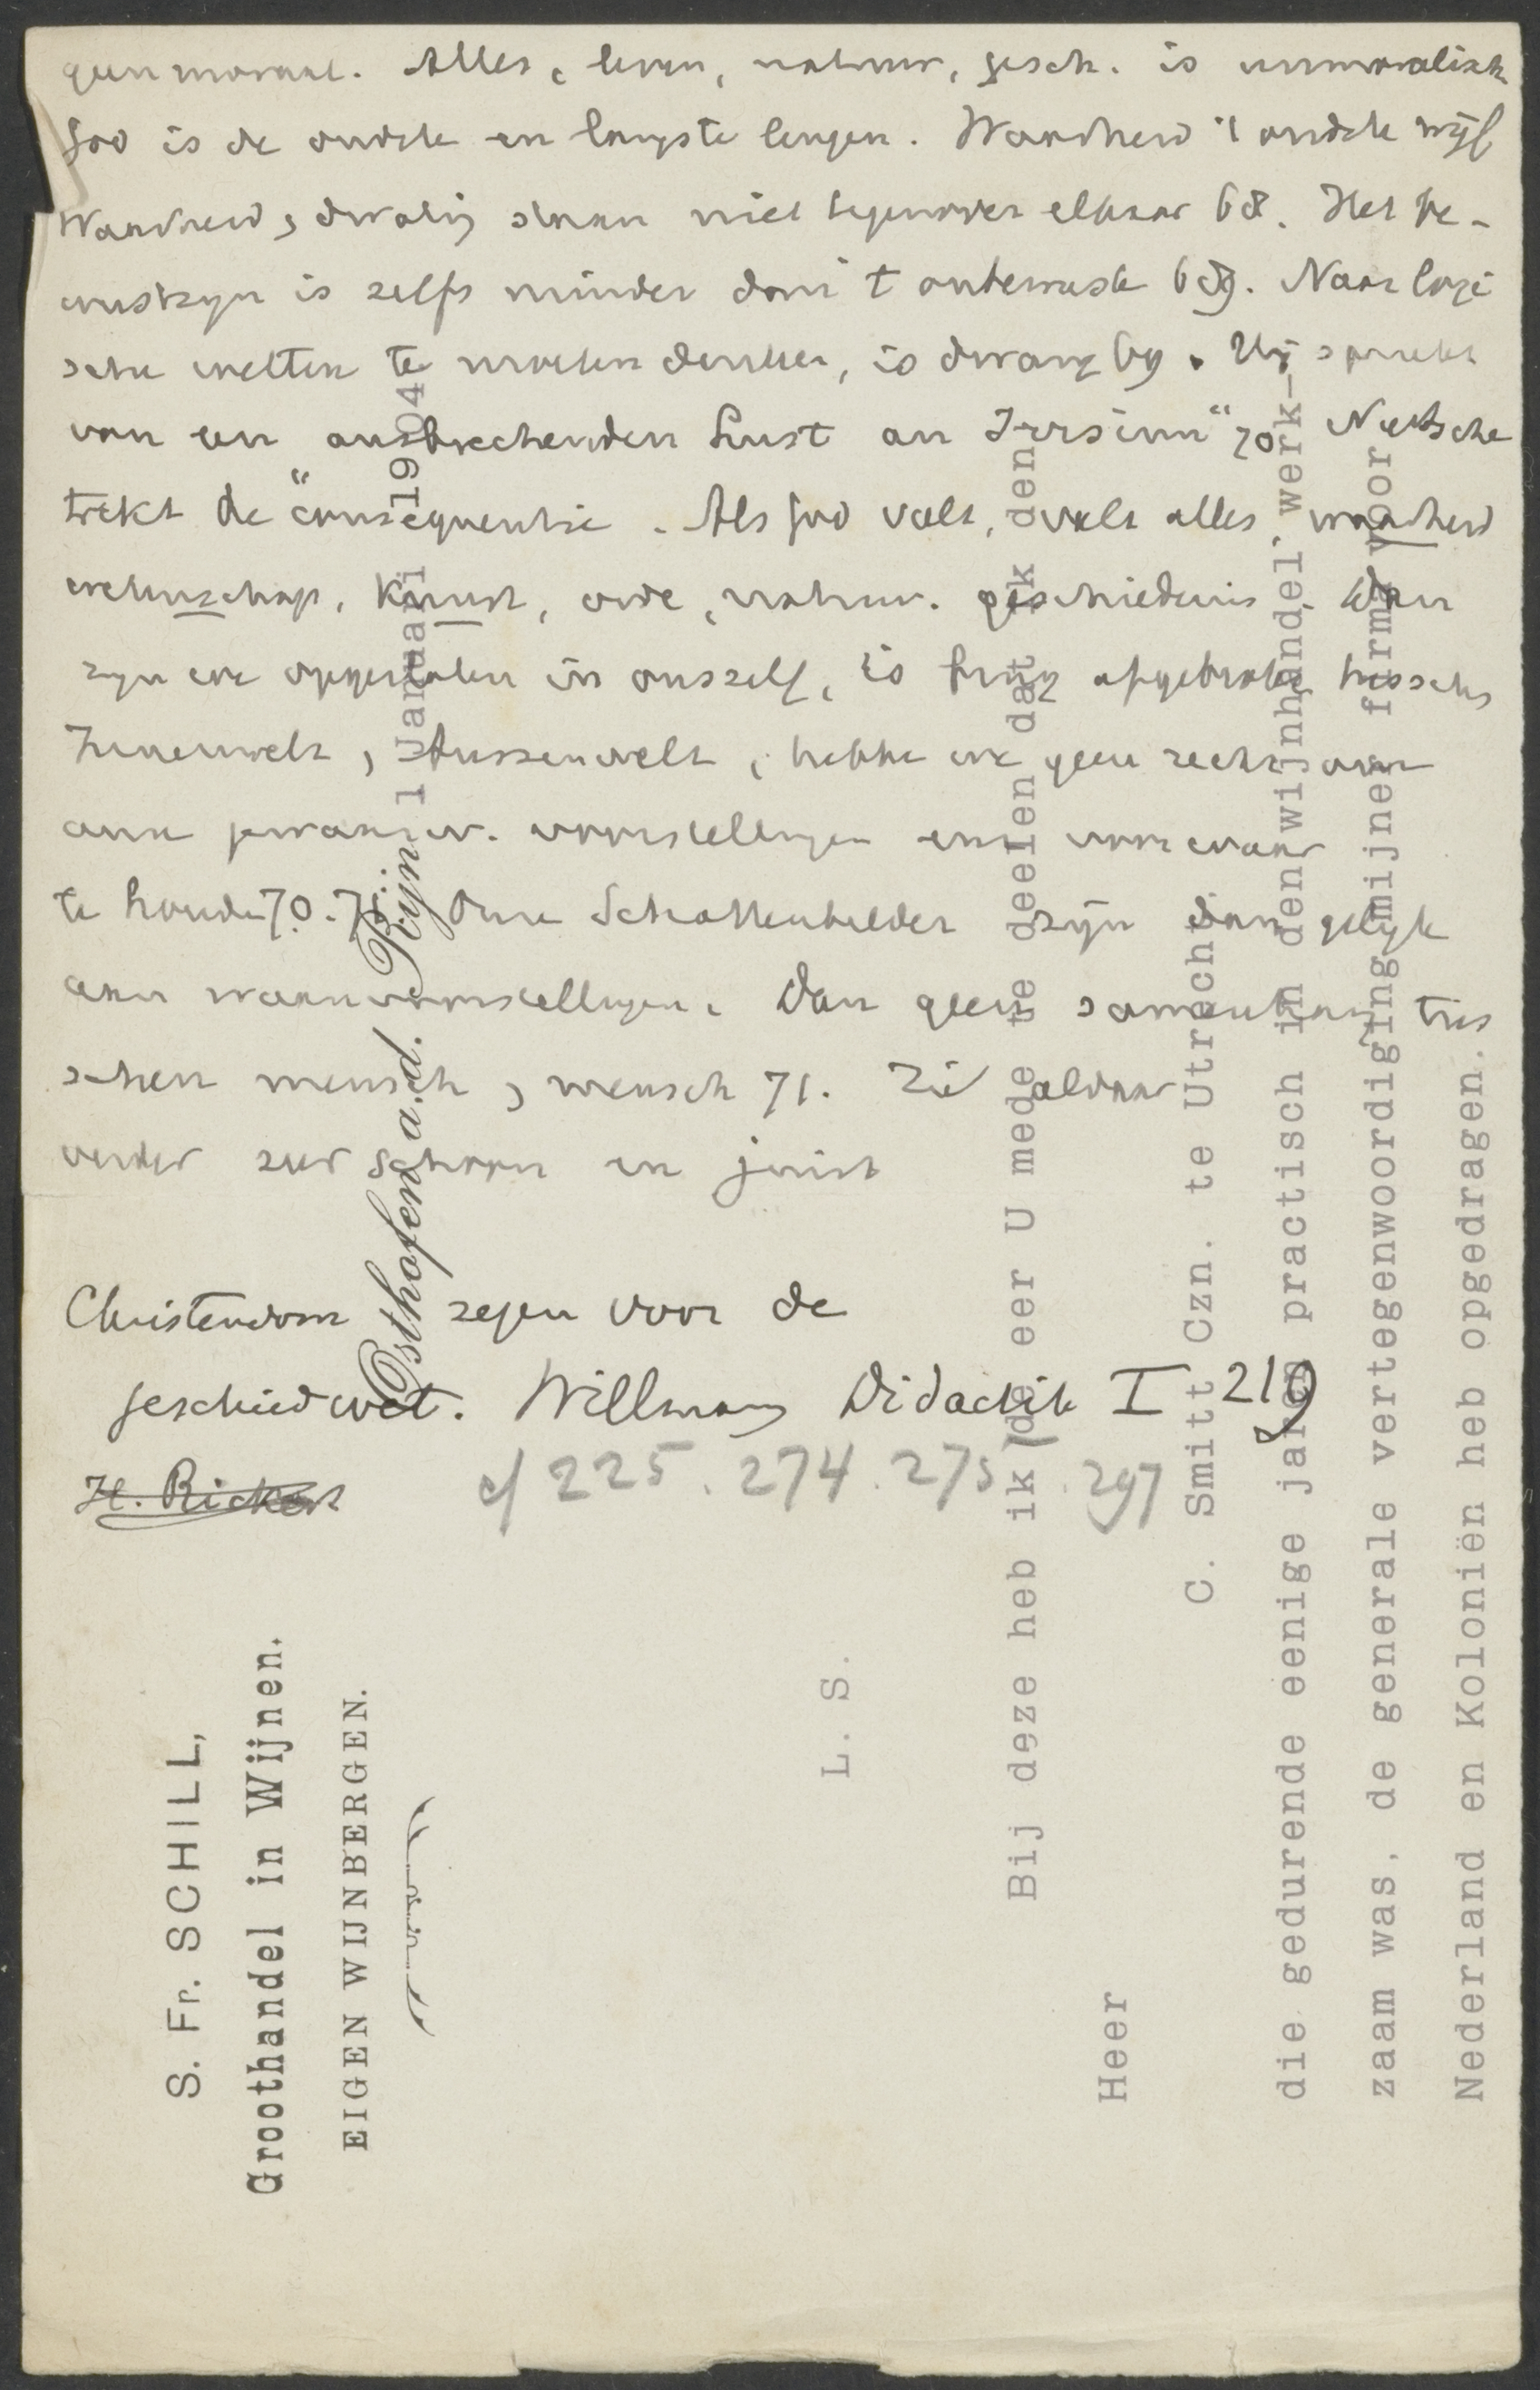 geen moraal. Alles, leven, natuur, gesch. is immoralisch
God is de oudste en langste leugen. Waarheid 't oudste wijf
Waarheid, dwaling staan niet tegenover elkaar 68. Het be-
wustzyn is zelfs minder dan 't onbewuste 69. Naar logi
sche wetten te moeten denken, is dwang 69. Hij spreekt
van een ausbrechenden Lust an Irrsinn" 70 Nietsche
trekt de consequentie. Als God valt, valt alles waarheid
wetenschap, kunst, orde, natuur. geschiedenis. Dan
zyn we opgesloten in onszelf, is brug afgebroken tusschen
Innenwelt, Aussenwelt, hebben we geen recht om
onze voorstellingen voor waar
te houden 70.71 Onze Schattenbilder zyn dan gelyk
aan waanvoorstellingen. Dan geen samenhang tus
schen mensch, mensch 71. Zie aldaar
verder zeer schoon en juist
Christendom zegen voor de
geschiedwet. Willmann Didactik I 219
H. Rickert cf 225. 274. 275. 297
S. Fr. SCHILL,
Groothandel in Wijnen.
EIGEN WIJNBERGEN.
Osthofen a. d. Rijn 1 Januari 1904
L. S.
Bij deze heb ik de eer U mede te deelen dat ik den
Heer
C. Smitt Czn. te Utrecht
die gedurende eenige jaren practisch in den wijnhandel werk-
zaam was, de generale vertegenwoordiging mijner firma voor
Nederland en Koloniën heb opgedragen.